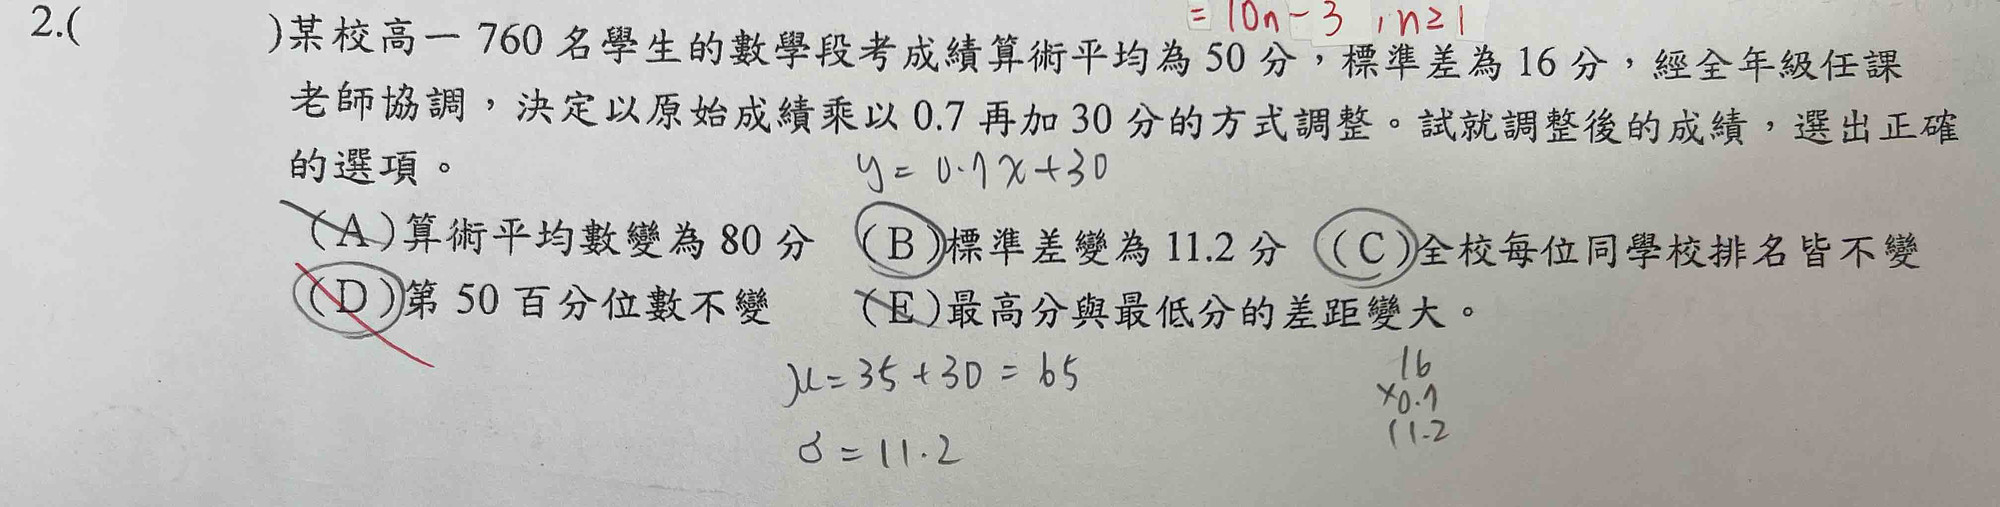 = 10n - 3 , n ≥ 1
2.( )某校高一 760 名學生的數學段考成績算術平均為 50 分，標準差為 16 分，經全年級任課
老師協調，決定以原始成績乘以 0.7 再加 30 分的方式調整。試就調整後的成績，選出正確
的選項。
y = 0.7x+30
(A)算術平均數變為 80 分 (B)標準差變為 11.2 分 (C)全校每位同學校排名皆不變
(D)第 50 百分位數不變 (E)最高分與最低分的差距變大。
μ = 35 + 30 = 65
16
×0.7
11.2
σ = 11.2